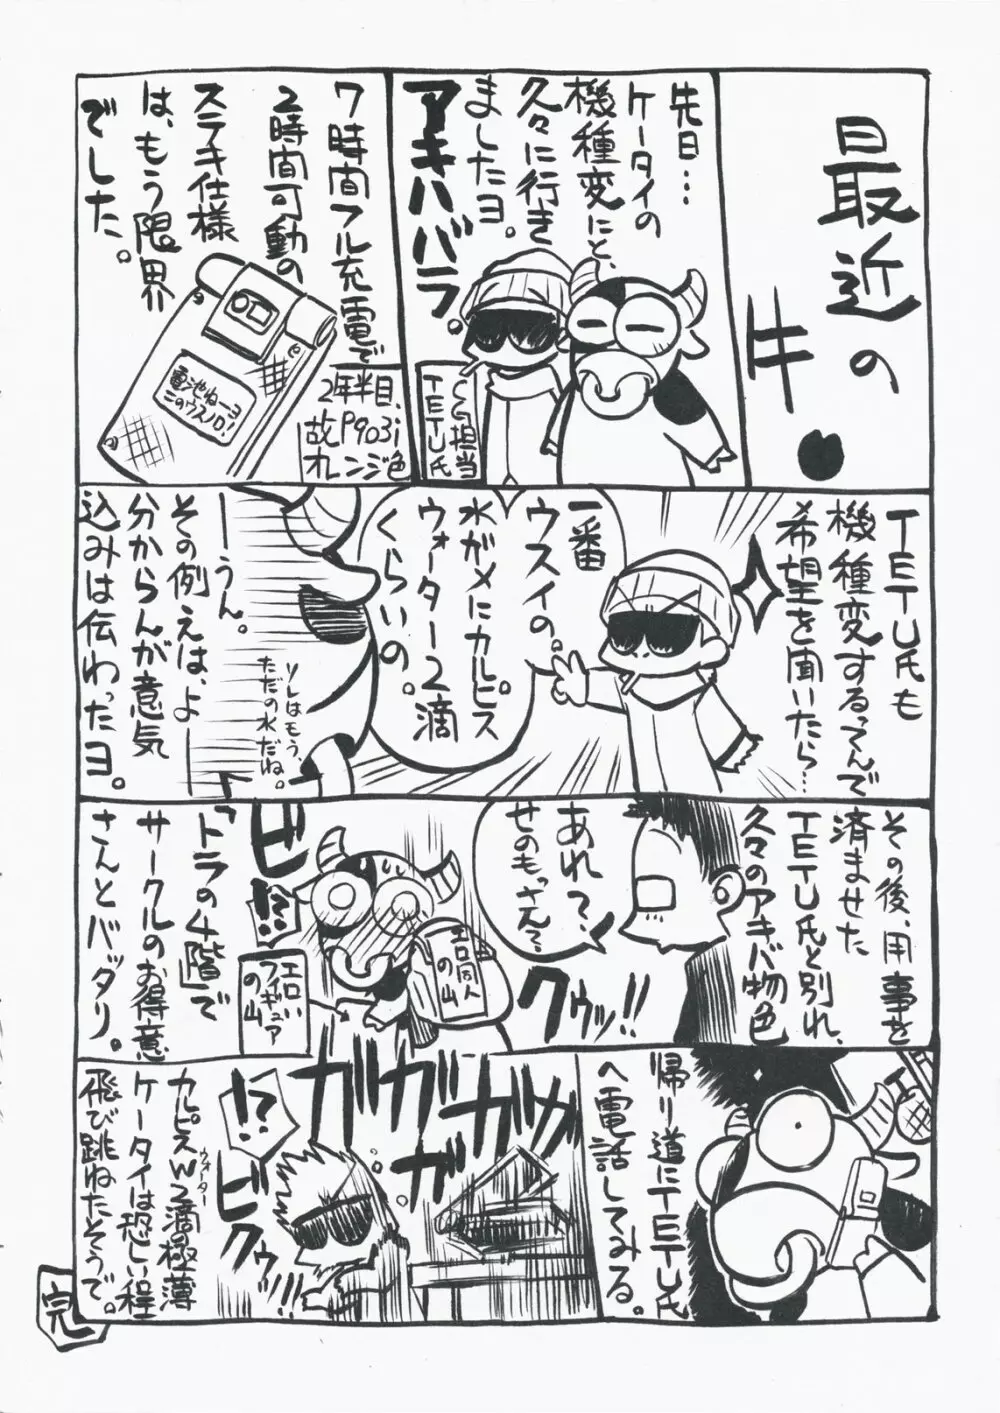 最近の
牛。
先日…
ケータイの
機種変にと、
久々に行き
ましたヨ。
アキハバラ。
CG担当
TETU氏
7時間フル充電で
2時間可動の
ステキ仕様
は、もう限界
でした。
電池ねーヨ
このウスノロ!
2年半目、
故P903i
オレンジ色
TETU氏も
機種変するってんで
希望を聞いたら…
一番
ウスイの。
水ガメにカルピス
ウォーター2滴
くらいの。
ーうん。
その例えは、よー
分からんが意気
込みは伝わったヨ。
ソレはもう、
ただの水だね。
その後、用事を
済ませた
TETU氏と別れ、
久々のアキバ物色
あれ?
せのもっさん?
クウッ!!
ビ
!?
エロ同人
の山
エロい
フィギュア
の山
「トラの4階」で
サークルのお得意
さんとバッタリ。
帰り道にTETU氏
へ電話してみる。
ガガガガ
!?
ビクウッ!!
カルピスW2滴の極薄
ウォーター
ケータイは恐しい程
飛び跳ねたそうで。
完